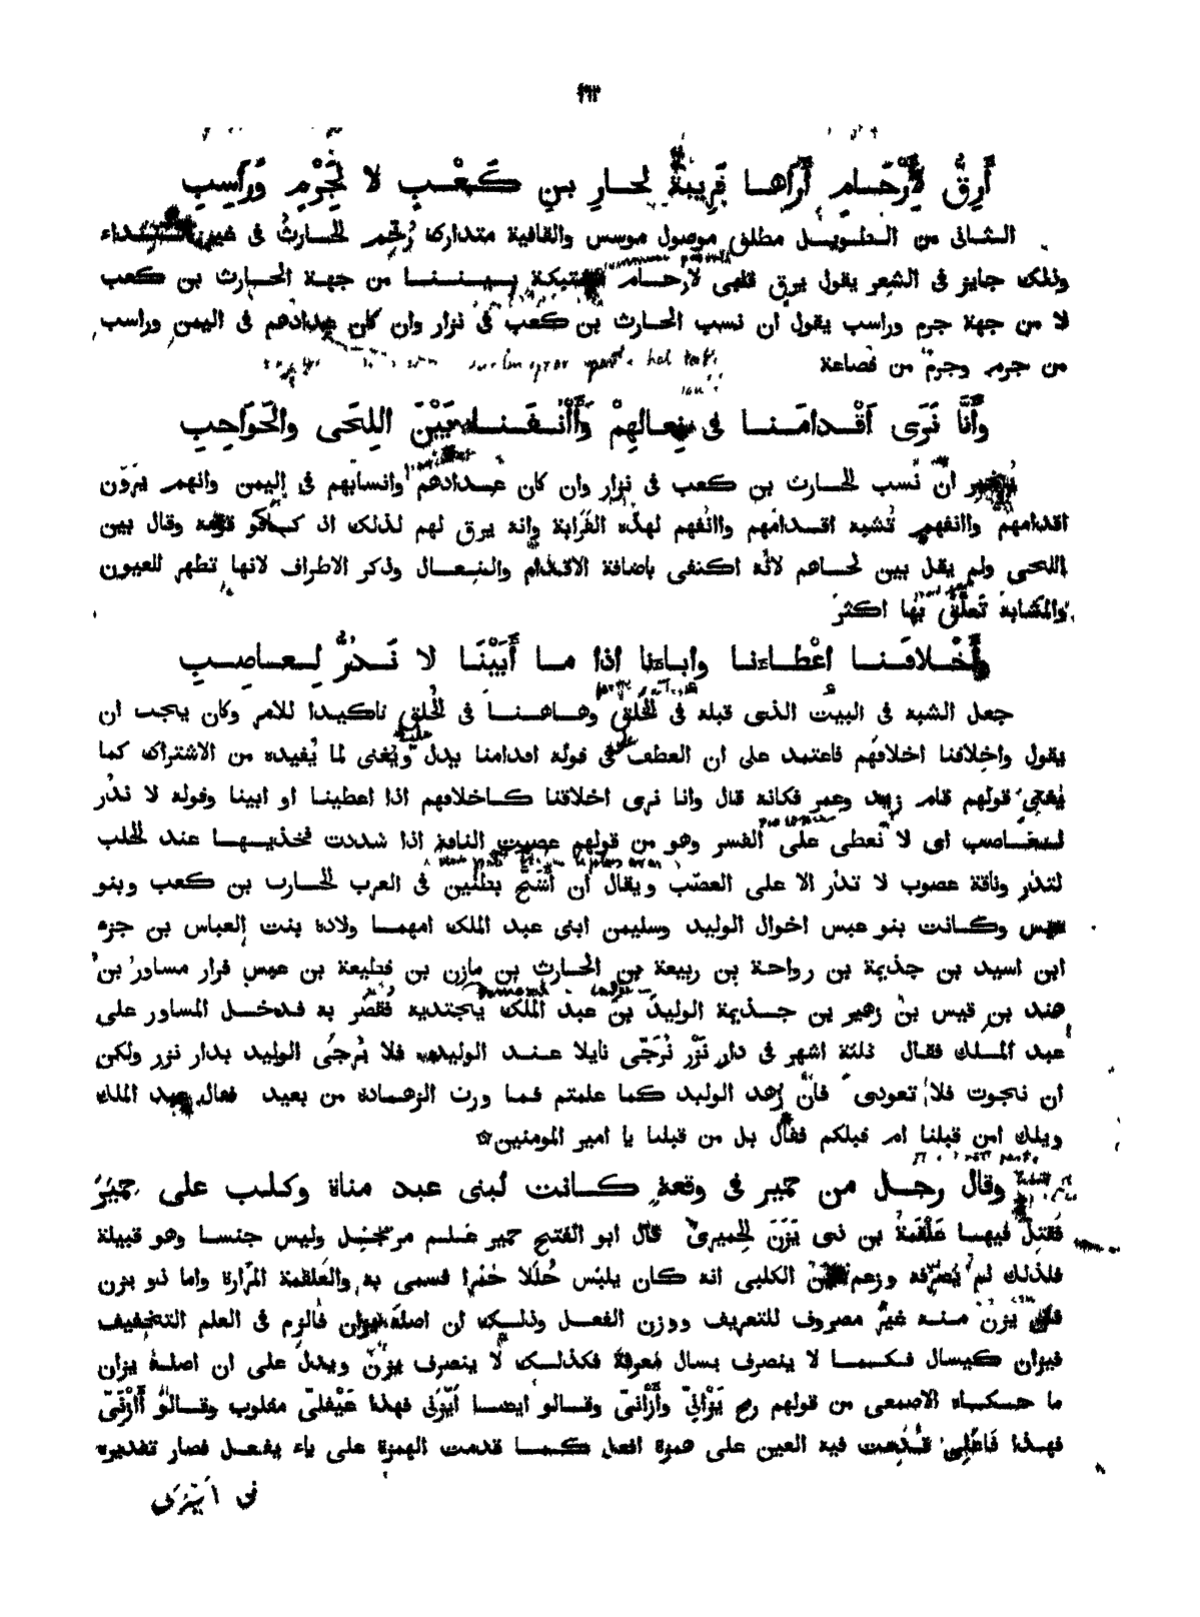 أَرِقُّ لِأَرْحَـامٍ أَرَاهـا قَرِيبَةً لحـارِ بـنِ كَـعْـبٍ لا لِجَرْمٍ وَرَاسِبِ
الـثـانى من الـطـويـل مطلق موصول موسس والقافية متدارك رُخّم الحـارث فى غير
وذلك جايز فى الشعر يقول يرق قلبى لارحـام مشتبكة بـيـنـنـا من جهـة الحـارث بن كعب
لا من جهة جرم وراسب يقول ان نسب الحارث بن كعب فى نزار وان كان عدادهم فى اليمن وراسب
من جرم وجرم من قضاعة
وأَنَّا نَرَى أَقْـدامَـنـا فى نِعالِهِمْ وَأَأْنُـفَـنـا بَيْنَ اللِحَى والحَوَاجِبِ
انّ نَسب الحـارث بن كعب فى نزار وان كان عـدادهم وانسابهم فى اليمن وانهم يَرَوْن
اقدامهم واانفهم تُشبه اقـدامهم واانفهم لهذه القَرابة وانه يرق لهم لذلك اذ وقال بين
اللحى ولم يقل بين لحاهم لانّه اكتفى باضافة الاقدام والنـعـال وذكر الاطراف لانها تظهر للعيون
والمشابهَ تَعلُّق بها اكثر
وأَخْـلاقَـنـا إِعْطـاءَنـا وابـاءَنا اذا مـا أَبَيْنَـا لا نَـدُرُّ لِـعـاصِـبِ
جعل الشبه فى البيت الذى قبله فى الخَلق وهـاهـنـا فى الخُلق تاكيدا للامر وكان يجب ان
يقول واخلاقنا اخلاقهم فاعتمد على ان العطف فى قوله اقدامنا يدل ويُغنى لما يُفيده من الاشتراك كما
يُغنى قولهم قام زيد وعمر فكانه قال وانا نرى اخلاقنا كـاخلاقهم اذا اعطينـا او ابينا وقوله لا ندُر
لـعـاصب اى لا نعطى على القسر وهو من قولهم عصبت الناقة اذا شددت فخذيـهـا عند الحلب
لتدُر وناقة عصوب لا تدُر الا على العصْب ويقال ان بطنين فى العرب الحـارث بن كعب وبنو
عبس وكـانت بنو عبس اخوال الوليد وسليمن ابنى عبد الملك امهمـا ولادة بنت العباس بن جزء
ابن اسيد بن جذيمة بن رواحـة بن ربيعة بن الحـارث بن مازن بن قطيعة بن عبس فزار مساور بن
هند بن قيس بن زهير بن جـذيمة الوليدَ بنَ عبد الملك يجتديه فقصّر به فـدخـل المساور على
عبد المـلك فقـال ثلثة اشهر فى دار نَزْرٍ نُرَجّى نايلا عـنـد الوليد فلا يُرجَى الوليد بدار نزر ولكن
ان نجوت فلا تعودى فانّ زُهد الوليد كما علمتم فما ورث الزهـادة من بعيد فقال عبد الملك
ويلك امن قبلنا ام قبلكم فقال بل من قبلنا يا امير المومنين☆
وقال رجـل من حمير فى وقعة كـانت لبنى عبد مناة وكلب على حِمْيَرَ
فقُتِل فيهـا عَلْقَمة بن ذى يَزَنَ الحِميرىّ قال ابو الفتح حمير عَـلـم مرتجـل وليس جنسا وهو قبيلة
فلذلك لم يَصْرفه وزعم الكلبى انه كان يلبَس حُلَلا حُمْرا فسمى به والعلقمة المرّارة واما ذو يزن
يزن مـنـه غيرُ مصروف للتعريف ووزن الفعـل وذلـك ان اصله يزان فالزم فى العلم التخفيف
فيزان كيسال فـكـمـا لا ينصرف يسال مَعرِفة فكذلـك لا ينصرف يزَن ويدلّ على ان اصلـه يزان
ما حـكـاه الاصمعى من قولهم رمح يَزْانىّ وأَزْانىّ وقـالو ايضـا أَيْزَنى فهذا عَيْفلىّ مقلوب وقـالو أَازْنىّ
فهـذا قُدّمت فيه العين على همزة افعل كـمـا قدمت الهمزة على ياء يفعـل فصار تقديره